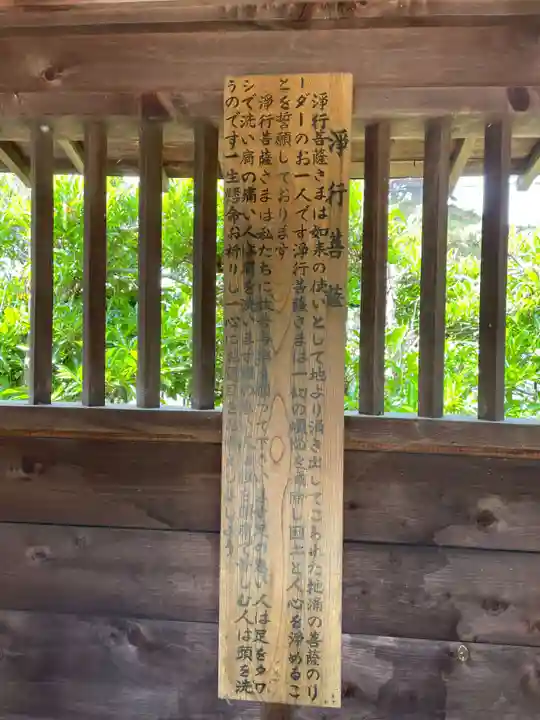 淨行菩薩
淨行菩薩さまは如来の使いとして地より湧き出してこられた地涌の菩薩のリ
ーダーのお一人です淨行菩薩さまは一切の煩悩を清め国土と人心を淨めるこ
とを誓願しております
淨行菩薩さまは私たちに 下さ い人は足をタワ
シで洗い肩の痛い人は肩を洗います 人は頭を洗
うのです一生懸命お祈りし一心にお題目を しましょう